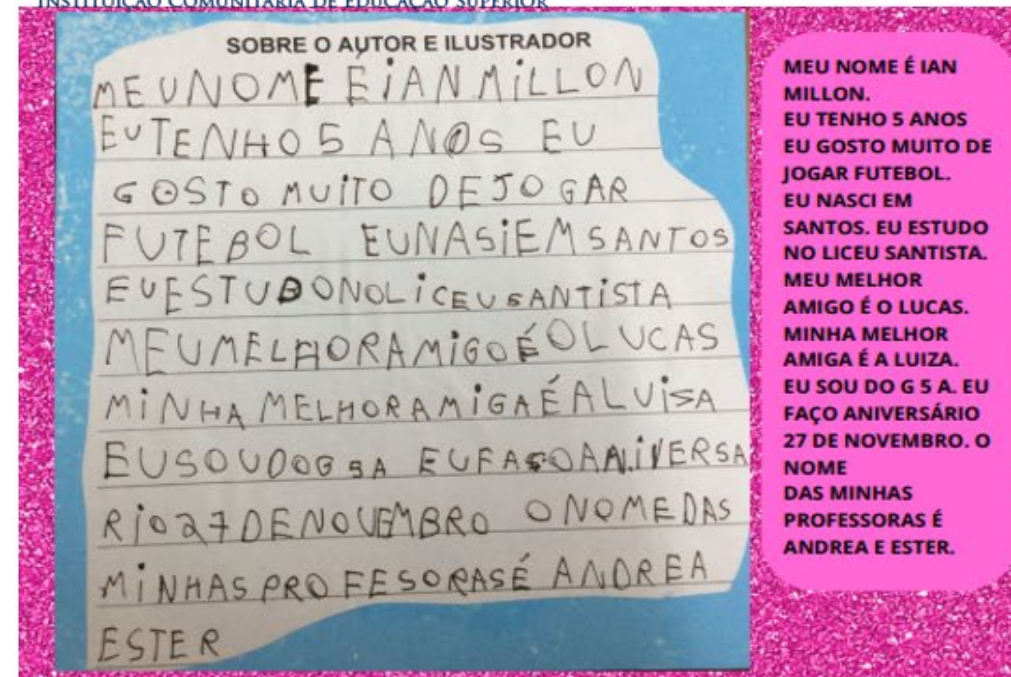 INSTITUIÇÃO COMUNITÁRIA DE EDUCAÇÃO SUPERIOR
SOBRE O AUTOR E ILUSTRADOR
MEUNOME ÉIAN MILLON
EUTENHO 5 ANOS EU
GOSTO MUITO DEJOGAR
FUTEBOL EUNASiEMSANTOS
EUESTUDONOLICEUSANTISTA
MEUMELHORAMIGOÉOLUCAS
MINHA MELHORAMIGAÉALUISA
EUSOUDOG5A EUFASOANIVERSA
RIO27DENOVEMBRO ONOMEDAS
MINHASPROFESORASÉ ANDREA
ESTER
MEU NOME É IAN
MILLON.
EU TENHO 5 ANOS
EU GOSTO MUITO DE
JOGAR FUTEBOL.
EU NASCI EM
SANTOS. EU ESTUDO
NO LICEU SANTISTA.
MEU MELHOR
AMIGO É O LUCAS.
MINHA MELHOR
AMIGA É A LUIZA.
EU SOU DO G 5 A. EU
FAÇO ANIVERSÁRIO
27 DE NOVEMBRO. O
NOME
DAS MINHAS
PROFESSORAS É
ANDREA E ESTER.